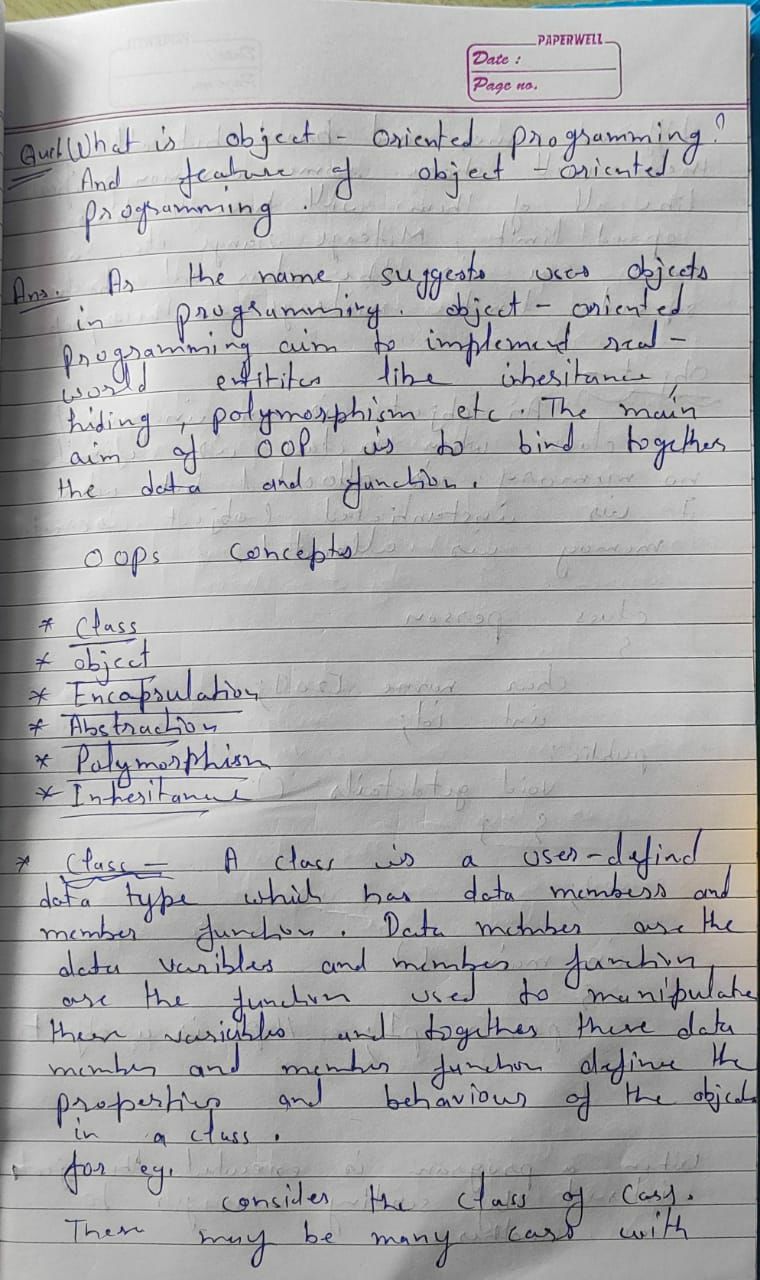 PAPERWELL
Date :
Page no.
Que1 What is object - oriented programming?
And feature of object - oriented
programming.
Ans. As the name suggests uses objects
in programming. object - oriented
programming aim to implement real -
world entitites like inheritance,
hiding, polymorphism etc. The main
aim of OOP is to bind together
the data and function.
OOPs Concepts
* Class
* object
* Encapsulation
* Abstraction
* Polymorphism
* Inheritance
* Class - A class is a user-defind
data type which has data members and
member function. Data member are the
data varibles and member function
are the function used to manipulate
these variables and together these data
member and member function define the
properties and behaviour of the object
in a class.
for eg,
consider the class of Cars.
There may be many cars with